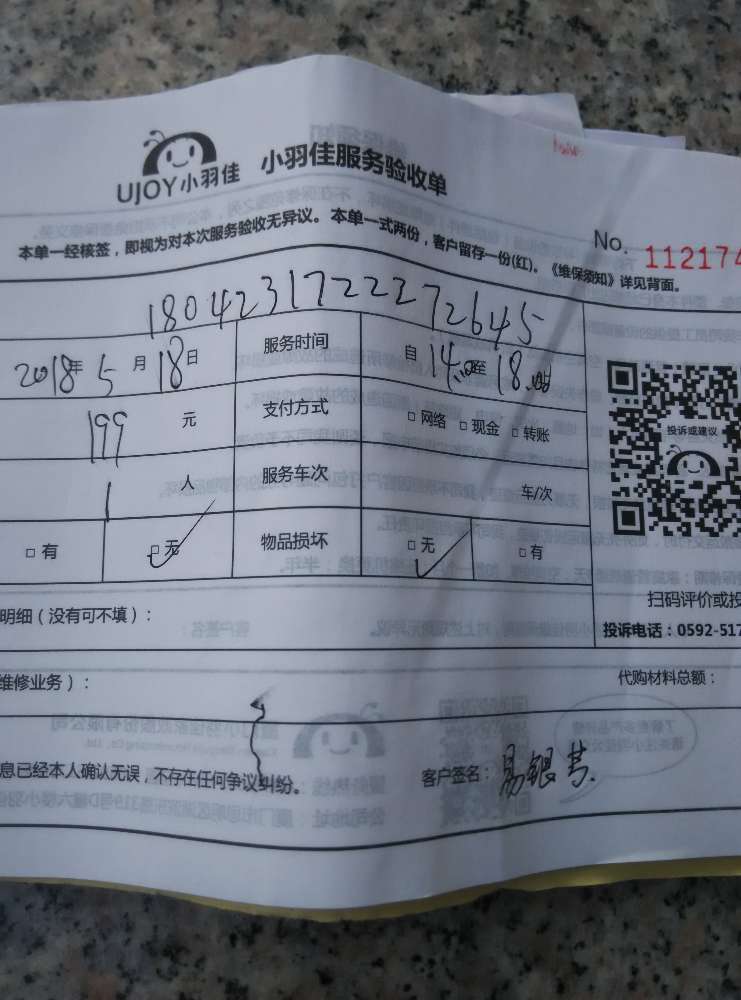 UJOY小羽佳 小羽佳服务验收单
本单一经核签，即视为对本次服务验收无异议。本单一式两份，客户留存一份(红)。《维保须知》详见背面。
No. 112174
18042317222272645
2018年5月18日 服务时间 自14:00至18:00时
199元 支付方式 □网络 □现金 □转账
1人 服务车次 车/次
□有 □无 物品损坏 □无 □有
投诉或建议
扫码评价或投
明细（没有可不填）：
投诉电话：0592-517
维修业务）： 代购材料总额：
息已经本人确认无误，不存在任何争议纠纷。 客户签名：易银芸